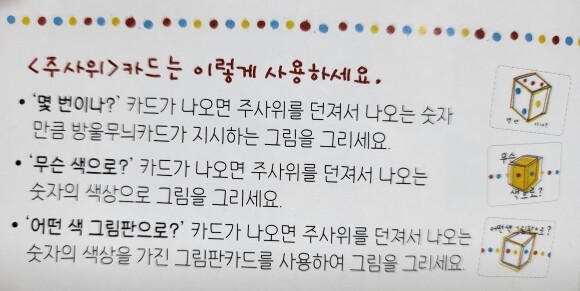 <주사위>카드는 이렇게 사용하세요.
• '몇 번이나?' 카드가 나오면 주사위를 던져서 나오는 숫자
만큼 방울무늬카드가 지시하는 그림을 그리세요.
몇 번 이나?
• '무슨 색으로?' 카드가 나오면 주사위를 던져서 나오는
숫자의 색상으로 그림을 그리세요.
무슨
색으로?
• '어떤 색 그림판으로?' 카드가 나오면 주사위를 던져서 나오는
숫자의 색상을 가진 그림판카드를 사용하여 그림을 그리세요.
어떤 색 그림판으로?